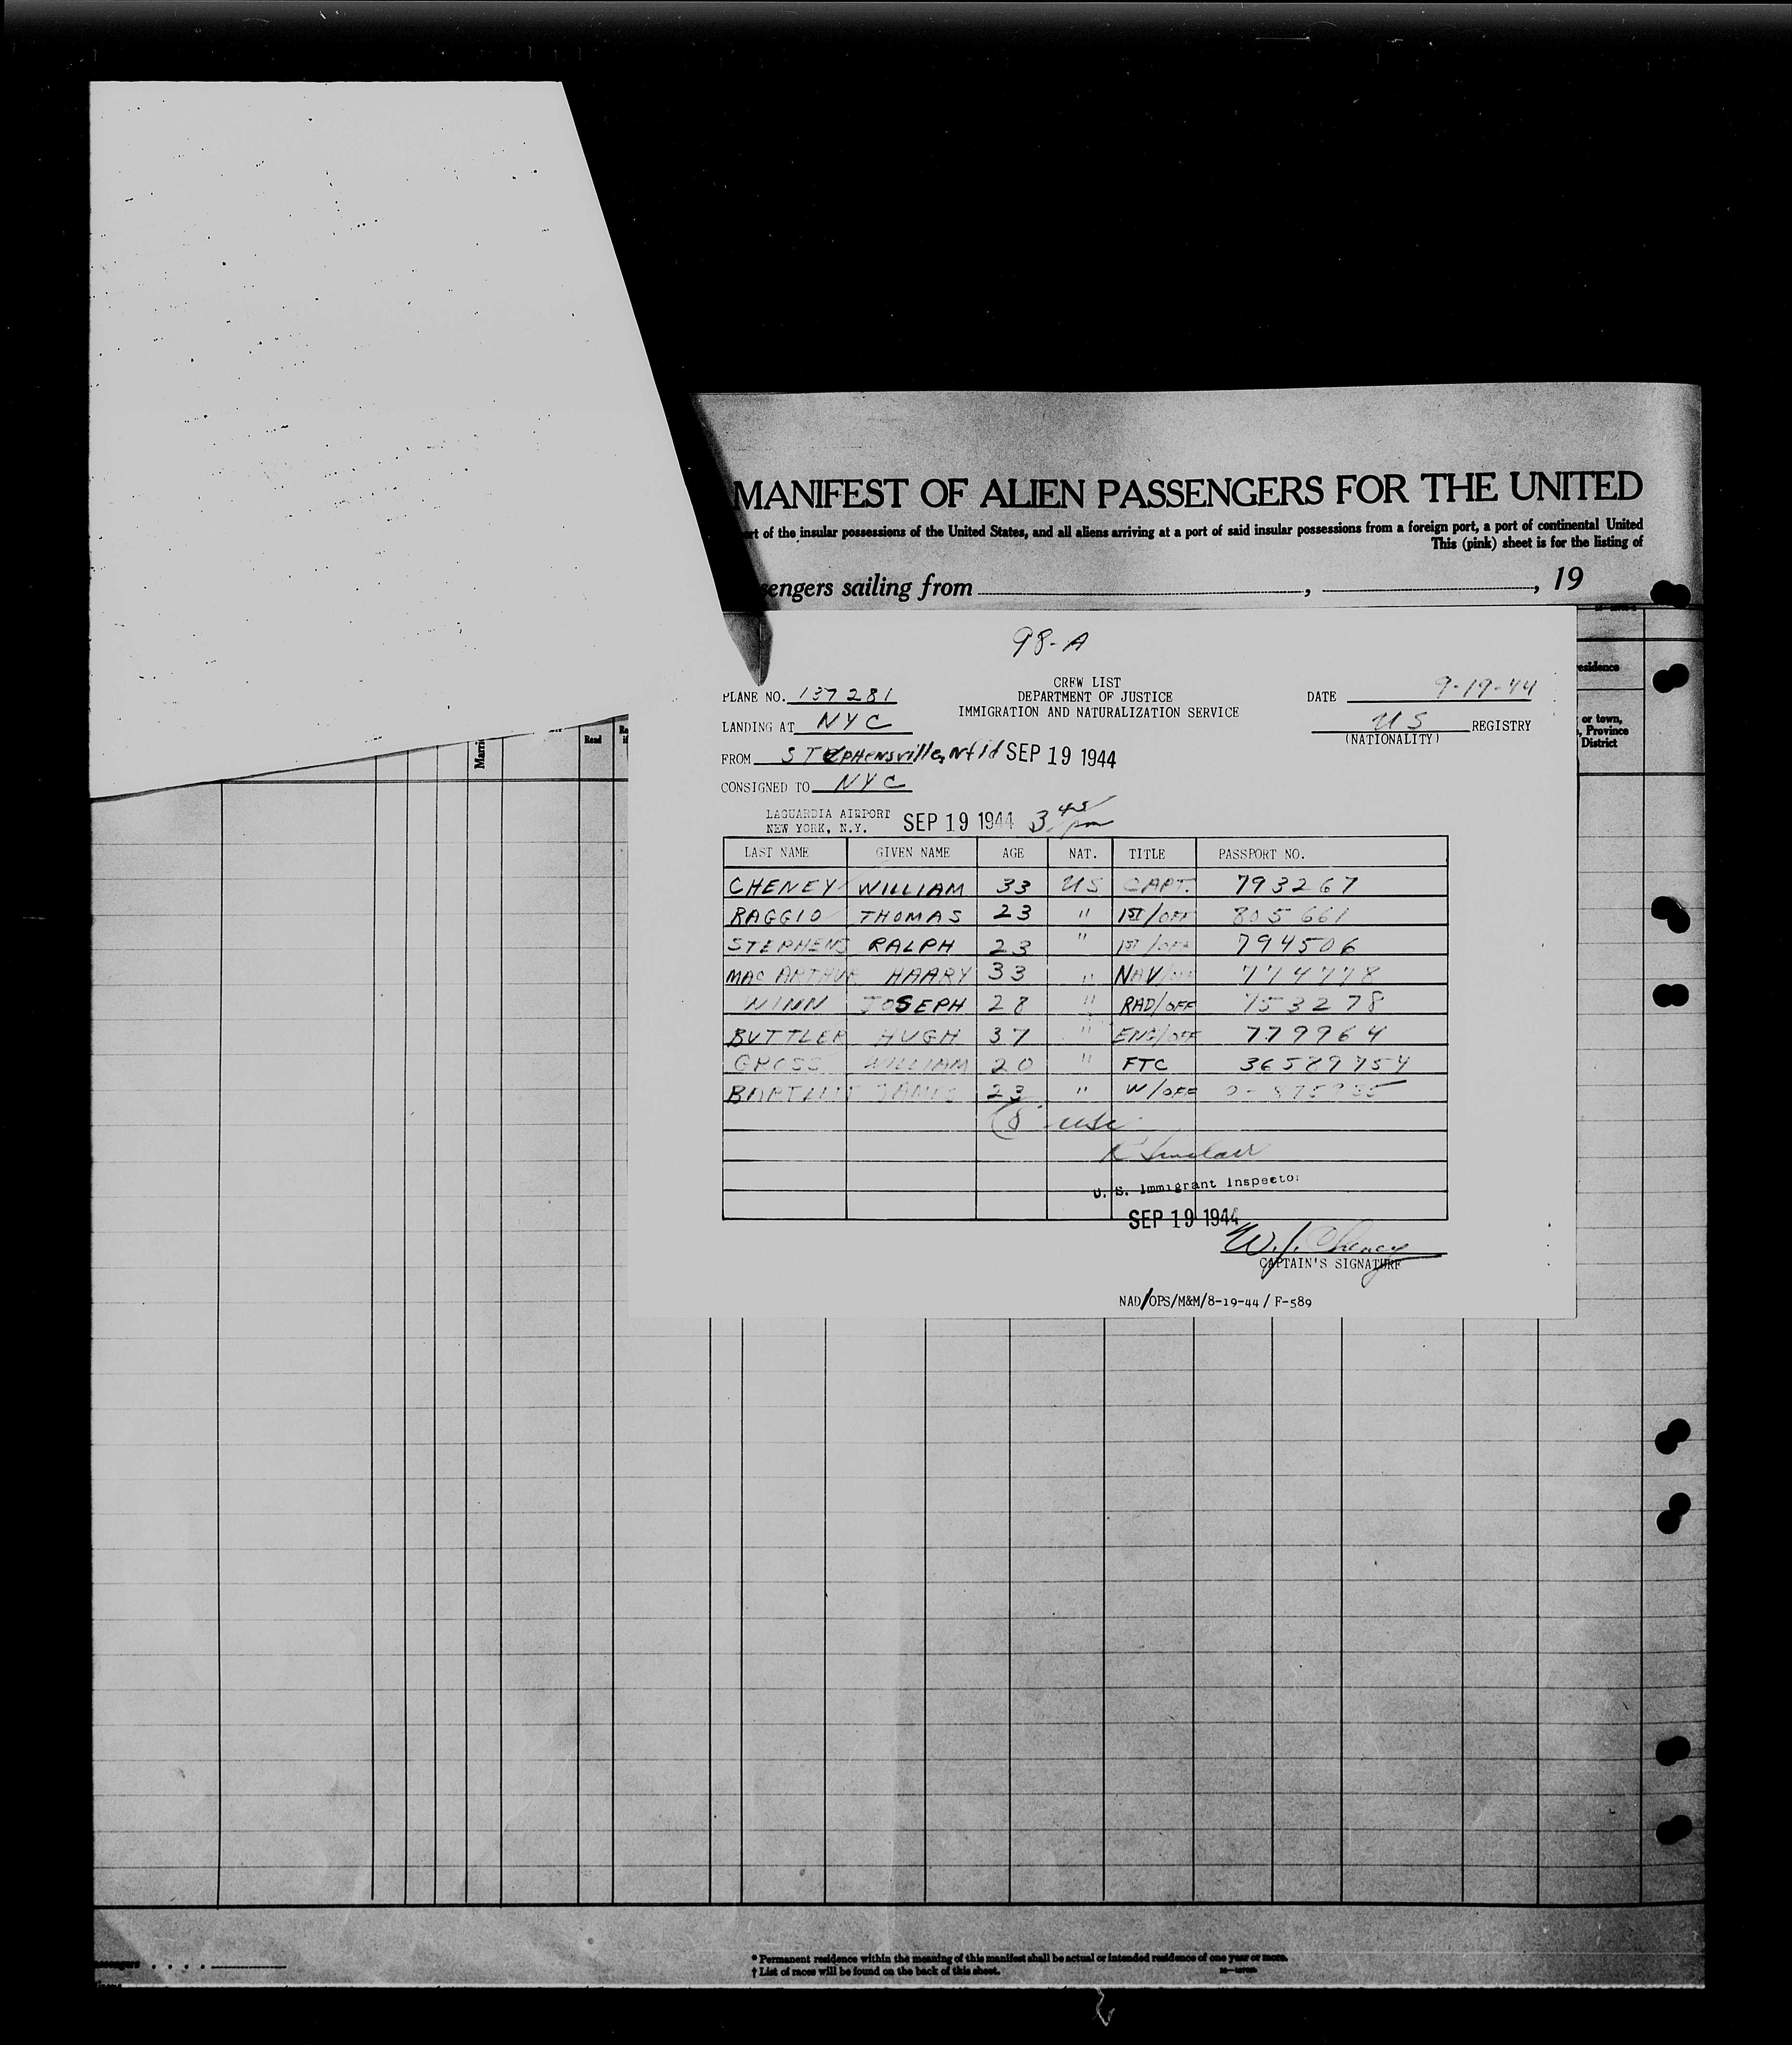 MANIFEST OF ALIEN PASSENGERS FOR THE UNITED
of the insular possessions of the United States, and all aliens arriving at a port of said insular possessions from a foreign port, a port of continental United
This (pink) sheet is for the listing of
sengers sailing from , , 19
98-A
CREW LIST
PLANE NO. 137281 DEPARTMENT OF JUSTICE DATE 9-19-44
IMMIGRATION AND NATURALIZATION SERVICE
LANDING AT NYC US REGISTRY
(NATIONALITY)
FROM STephensville, Nfld SEP 19 1944
CONSIGNED TO NYC
LAGUARDIA AIRPORT
NEW YORK, N.Y. SEP 19 1944 3 45 pm
LAST NAME GIVEN NAME AGE NAT. TITLE PASSPORT NO.
CHENEY WILLIAM 33 US CAPT. 793267
RAGGIO THOMAS 23 " 1ST/OFF 805661
STEPHENS RALPH 23 " 1ST/OFF 794506
MAC ARTHUR HAARY 33 " NAV/OFF 774778
NINN JOSEPH 28 " RAD/OFF 753278
BUTTLER HUGH 37 " ENG/OFF 779964
GROSS WILLIAM 20 " FTC 36589754
JAMES 23 " W/OFF
8 usc
R Sinclair
U. S. Immigrant Inspector
SEP 19 1944
W. J. Cheney
CAPTAIN'S SIGNATURE
NAD/OPS/M&M/8-19-44/ F-589
esidence
or town,
Province
District
Read
Marri
* Permanent residence within the meaning of this manifest shall be actual or intended residence of one year or more.
† List of races will be found on the back of this sheet.